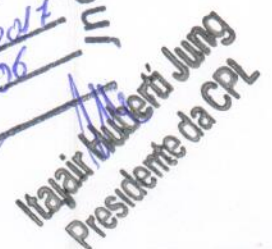 2017
06
Itajair Huberti Jung
Presidente da CPL